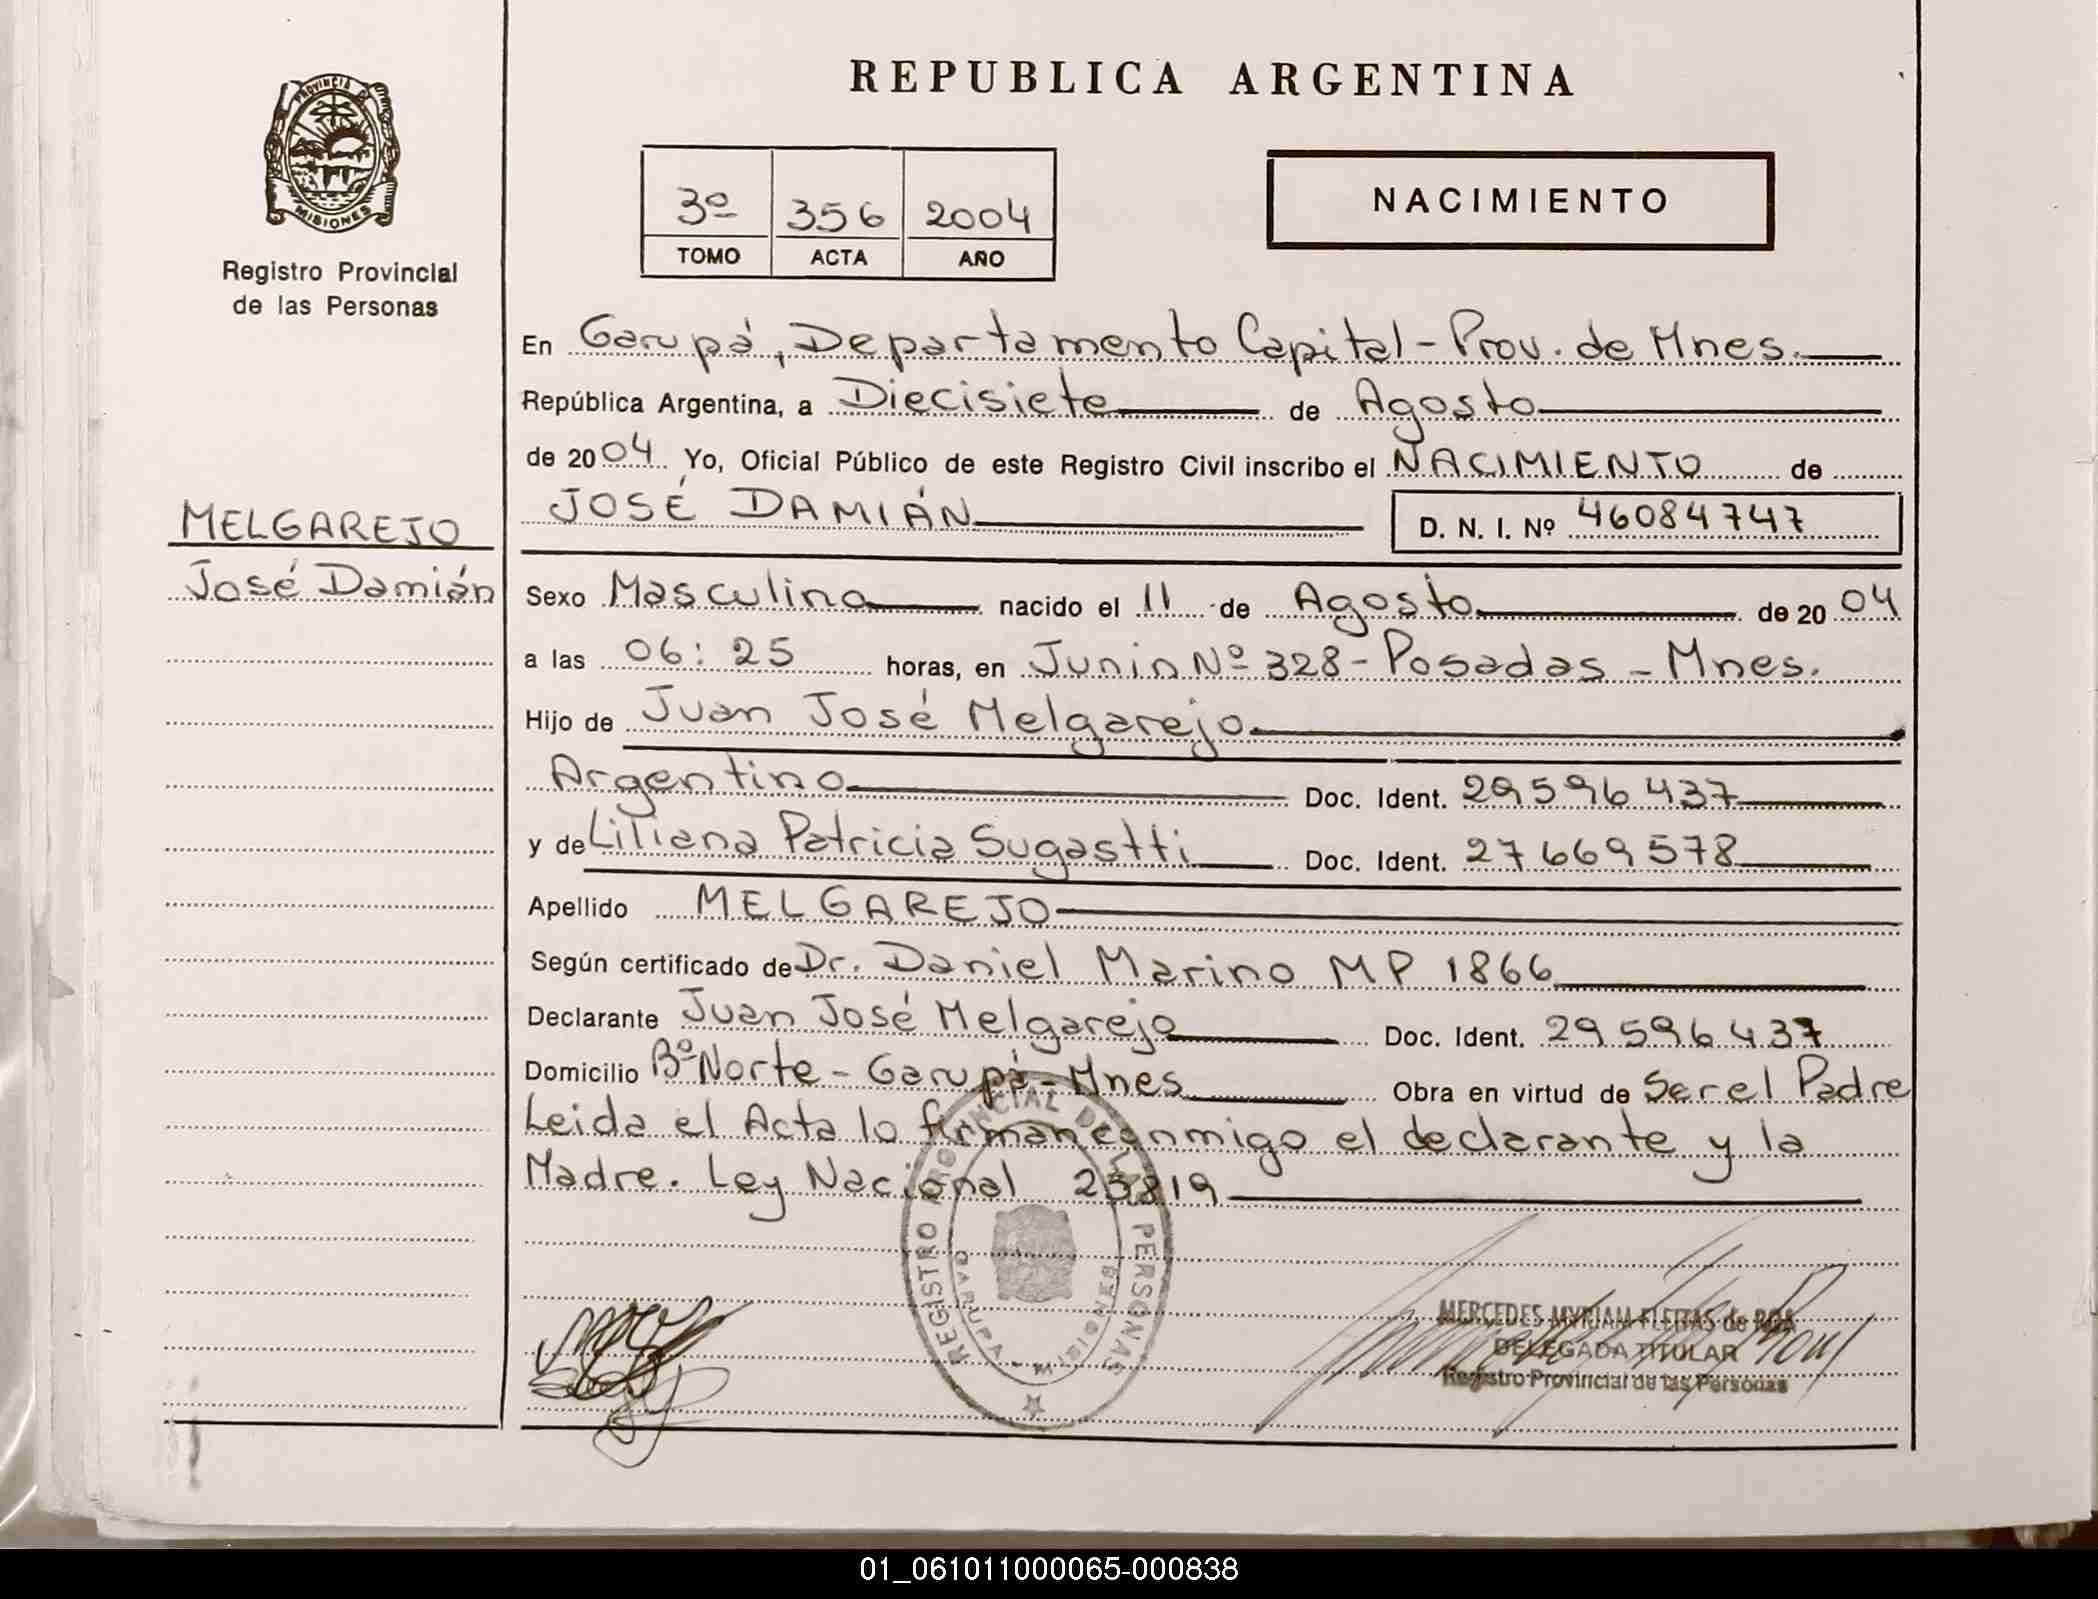 PROVINCIA DE
MISIONES
Registro Provincial
de las Personas
MELGAREJO
José Damián
REPUBLICA ARGENTINA
3º 356 2004
TOMO ACTA AÑO
NACIMIENTO
En Garupá, Departamento Capital - Prov. de Mnes.
República Argentina, a Diecisiete de Agosto
de 2004 Yo, Oficial Público de este Registro Civil inscribo el NACIMIENTO de
JOSÉ DAMIÁN D. N. I. Nº 46084747
Sexo Masculino nacido el 11 de Agosto de 2004
a las 06:25 horas, en Junin Nº 328 - Posadas - Mnes.
Hijo de Juan José Melgarejo
Argentino Doc. Ident. 29596437
y de Liliana Patricia Sugastti Doc. Ident. 27669578
Apellido MELGAREJO
Según certificado de Dr. Daniel Marino MP 1866
Declarante Juan José Melgarejo Doc. Ident. 29596437
Domicilio Bº Norte - Garupá - Mnes Obra en virtud de Ser el Padre
Leida el Acta lo firman conmigo el declarante y la
Madre. Ley Nacional 25819
REGISTRO PROVINCIAL DE LAS PERSONAS
GARUPA - MISIONES
MERCEDES MYRIAM FLEITAS de ROA
DELEGADA TITULAR
Registro Provincial de las Personas
01_061011000065-000838